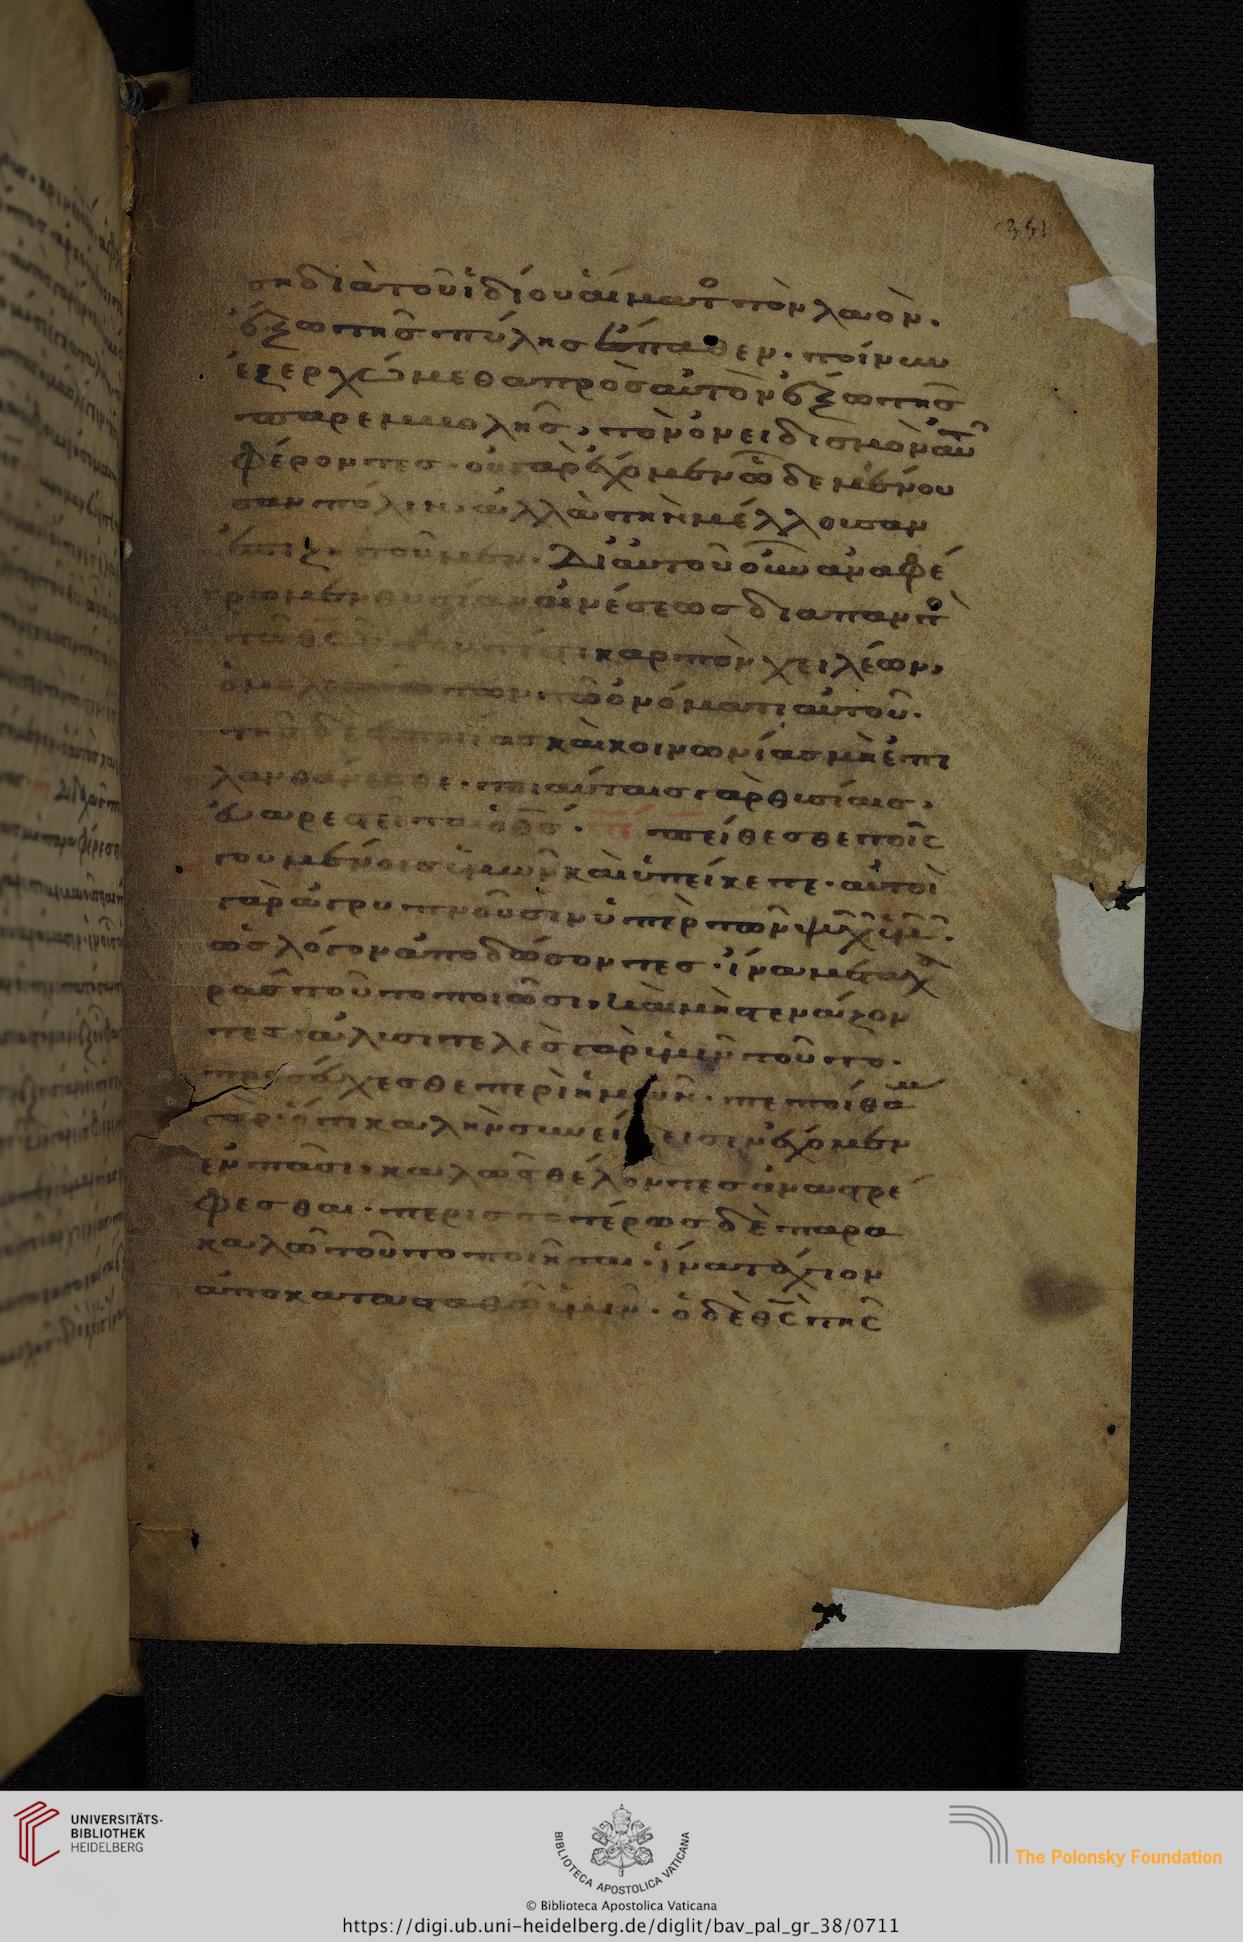 351
ση διὰ τοῦ ἰδίου αἵματο τὸν λαὸν.
ἔξω τῆς πύλης ἔπαθεν. τοίνυν
ἐξερχώμεθα πρὸς αὐτὸν ἔξω τῆς
παρεμβολῆς, τὸν ὀνειδισμὸν αὐτοῦ
φέροντες. οὐ γὰρ ἔχομεν ὧδε μένου
σαν πόλιν, ἀλλὰ τὴν μέλλουσαν
ἐπιζητοῦμεν. Δι αὐτοῦ οὖν ἀναφέ
ρωμεν θυσίαν αἰνέσεως διαπαντὸ
καρπὸν χειλέων,
τῶ ὀνόματι αὐτοῦ.
τῆς δὲ εὐποιίας καὶ κοινωνίας μὴ ἐπι
λανθάνεσθε. τοιαύταις γὰρ θυσίαις,
εὐαρεστεῖται ὁ θς. πείθεσθε τοῖς
ἡγουμένοις ὑμῶν καὶ ὑπείκετε. αὐτοὶ
γὰρ ἀγρυπνοῦσιν ὑπὲρ τῶν ψυχῶν ὑμῶν.
ὡς λόγον ἀποδώσοντες. ἵνα μετὰ χα
ρᾶς τοῦτο ποιῶσι, καὶ μὴ στενάζον
τες. ἀλυσιτελὲς γὰρ ὑμῖν τοῦτο.
προσεύχεσθε περὶ ἡμῶν. πεποίθαμεν
γὰρ. ὅτι καλὴν συνείδεισιν ἔχομεν
ἐν πᾶσι, καλῶς θέλοντες ἀναστρέ
φεσθαι. περισσοτέρως δὲ παρα
καλῶ τοῦτο ποιῆσαι. ἵνα τάχιον
ἀποκατασταθῶ ὑμῖν. ὁ δὲ θς τῆς
UNIVERSITÄTS-
BIBLIOTHEK
HEIDELBERG
BIBLIOTECA APOSTOLICA VATICANA
The Polonsky Foundation
© Biblioteca Apostolica Vaticana
https://digi.ub.uni-heidelberg.de/diglit/bav_pal_gr_38/0711